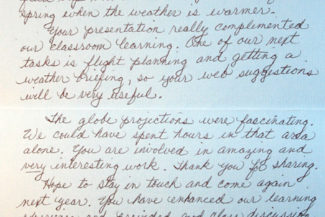 spring when the weather is warmer.
Your presentation really complimented
our classroom learning. One of our next
tasks is flight planning and getting a
weather briefing, so your web suggestions
will be very useful.
The globe projections were fascinating.
We could have spent hours in that area
alone. You are involved in amazing and
very interesting work. Thank you for sharing.
Hope to stay in touch and come again
next year. You have enhanced our learning
and provided and class discussion